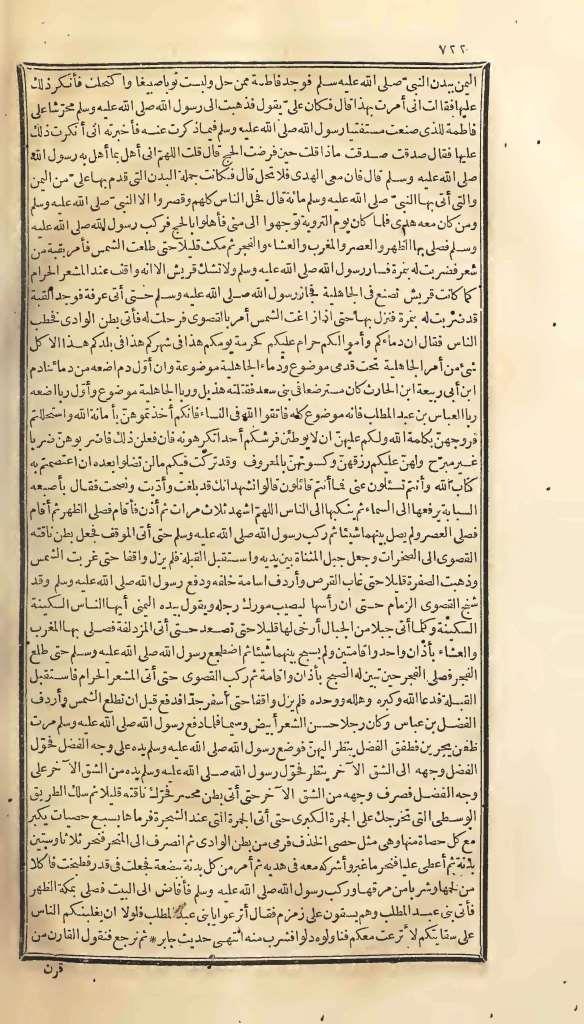 ٧٢٢
اليمن ببدن النبي صلى الله عليه وسلم فوجد فاطمة ممن حل ولبست ثوبا صبيغا واكتحلت فأنكر ذلك
عليها فقالت انى أمرت بهذا قال فكان على يقول فذهبت الى رسول الله صلى الله عليه وسلم محرشا على
فاطمة للذى صنعت مستفتيا رسول الله صلى الله عليه وسلم فيما ذكرت عنه فأخبرته انى أنكرت ذلك
عليها فقال صدقت صدقت ماذا قلت حين فرضت الحج قال قلت اللهم انى أهل بما أهل به رسول الله
صلى الله عليه وسلم قال فان معى الهدى فلا تحل قال فكانت جملة البدن التى قدم بها على من اليمن
والتى أتى بها النبي صلى الله عليه وسلم مائة قال فحل الناس كلهم وقصروا الا النبي صلى الله عليه وسلم
ومن كان معه هدى فلما كان يوم التروية توجهوا الى منى فأهلوا بالحج فركب رسول الله صلى الله عليه
وسلم فصلى بها الظهر والعصر والمغرب والعشاء والفجر ثم مكث قليلا حتى طلعت الشمس فأمر بقبة من
شعر فضربت له بنمرة فسار رسول الله صلى الله عليه وسلم ولا تشك قريش الا انه واقف عند المشعر الحرام
كما كانت قريش تصنع فى الجاهلية فجاز رسول الله صلى الله عليه وسلم حتى أتى عرفة فوجد القبة
قد ضربت له بنمرة فنزل بها حتى اذا زاغت الشمس أمر بالقصوى فرحلت له فأتى بطن الوادى فخطب
الناس فقال ان دماءكم وأموالكم حرام عليكم كحرمة يومكم هذا فى شهركم هذا فى بلدكم هذا الا كل
شئ من أمر الجاهلية تحت قدمى موضوع ودماء الجاهلية موضوعة وان أول دم اضعه من دمائنا دم
ابن أبى ربيعة ابن الحارث كان مسترضعا فى بنى سعد فقتلته هذيل وربا الجاهلية موضوع وأول ربا اضعه
ربا العباس بن عبد المطلب فانه موضوع كله فاتقوا الله فى النساء فانكم أخذتموهن بأمانة الله واستحللتم
فروجهن بكلمة الله ولكم عليهن ان لا يوطئن فرشكم أحدا تكرهونه فان فعلن ذلك فاضربوهن ضربا
غير مبرح ولهن عليكم رزقهن وكسوتهن بالمعروف وقد تركت فيكم مالن تضلوا بعده ان اعتصمتم به
كتاب الله وأنتم تسئلون عنى فما أنتم قائلون قالوا نشهد انك قد بلغت وأديت ونصحت فقال بأصبعه
السبابة يرفعها الى السماء ثم ينكبها الى الناس اللهم اشهد ثلاث مرات ثم أذن فأقام فصلى الظهر ثم أقام
فصلى العصر ولم يصل بينهما شيئا ثم ركب رسول الله صلى الله عليه وسلم حتى أتى الموقف فجعل بطن ناقته
القصوى الى الصخرات وجعل جبل المثناة بين يديه واستقبل القبلة فلم يزل واقفا حتى غربت الشمس
وذهبت الصفرة قليلا حتى غاب القرص وأردف اسامة خلفه ودفع رسول الله صلى الله عليه وسلم وقد
شنق القصوى الزمام حتى ان رأسها ليصيب مورك رحله ويقول بيده اليمنى أيها الناس السكينة
السكينة وكلما أتى جبلا من الجبال أرخى لها قليلا حتى تصعد حتى أتى المزدلفة فصلى بها المغرب
والعشاء بأذان واحد واقامتين ولم يسبح بينهما شيئا ثم اضطجع رسول الله صلى الله عليه وسلم حتى طلع
الفجر فصلى الفجر حين تبين له الصبح بأذان واقامة ثم ركب القصوى حتى أتى المشعر الحرام فاستقبل
القبلة فدعا الله وكبره وهلله ووحده فلم يزل واقفا حتى أسفر جدا فدفع قبل ان تطلع الشمس وأردف
الفضل بن عباس وكان رجلا حسن الشعر أبيض وسيما فلما دفع رسول الله صلى الله عليه وسلم مرت
ظعن يجرين فطفق الفضل ينظر اليهن فوضع رسول الله صلى الله عليه وسلم يده على وجه الفضل فحول
الفضل وجهه الى الشق الآخر ينظر فحول رسول الله صلى الله عليه وسلم يده من الشق الآخر على
وجه الفضل فصرف وجهه من الشق الآخر حتى أتى بطن محسر فحرك ناقته قليلا ثم سلك الطريق
الوسطى التى تخرجك على الجمرة الكبرى حتى أتى الجمرة التى عند الشجرة فرماها بسبع حصيات يكبر
مع كل حصاة منها وهى مثل حصى الخذف فرمى من بطن الوادى ثم انصرف الى المنحر فنحر ثلاثا وستين
بدنة ثم أعطى عليا فنحر ما غبر وأشركه معه فى هديه ثم أمر من كل بدنة ببضعة فجعلت فى قدر فطبخت فأكلا
من لحمها وشربا من مرقها وركب رسول الله صلى الله عليه وسلم فأفاض الى البيت فصلى بمكة الظهر
فأتى بنى عبد المطلب وهم يسقون على زمزم فقال أنزعوا يا بنى عبد المطلب فلولا ان يغلبنكم الناس
على سقايتكم لأنزعت معكم فناولوه دلوا فشرب منه انتهى حديث جابر * ثم نرجع فنقول القارن من
قرن